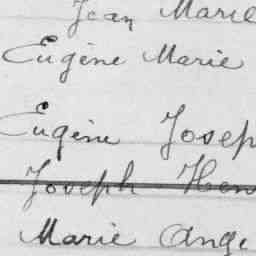 Jean Marie
Eugène Marie
Eugène Josep
Joseph Hen
Marie Ange